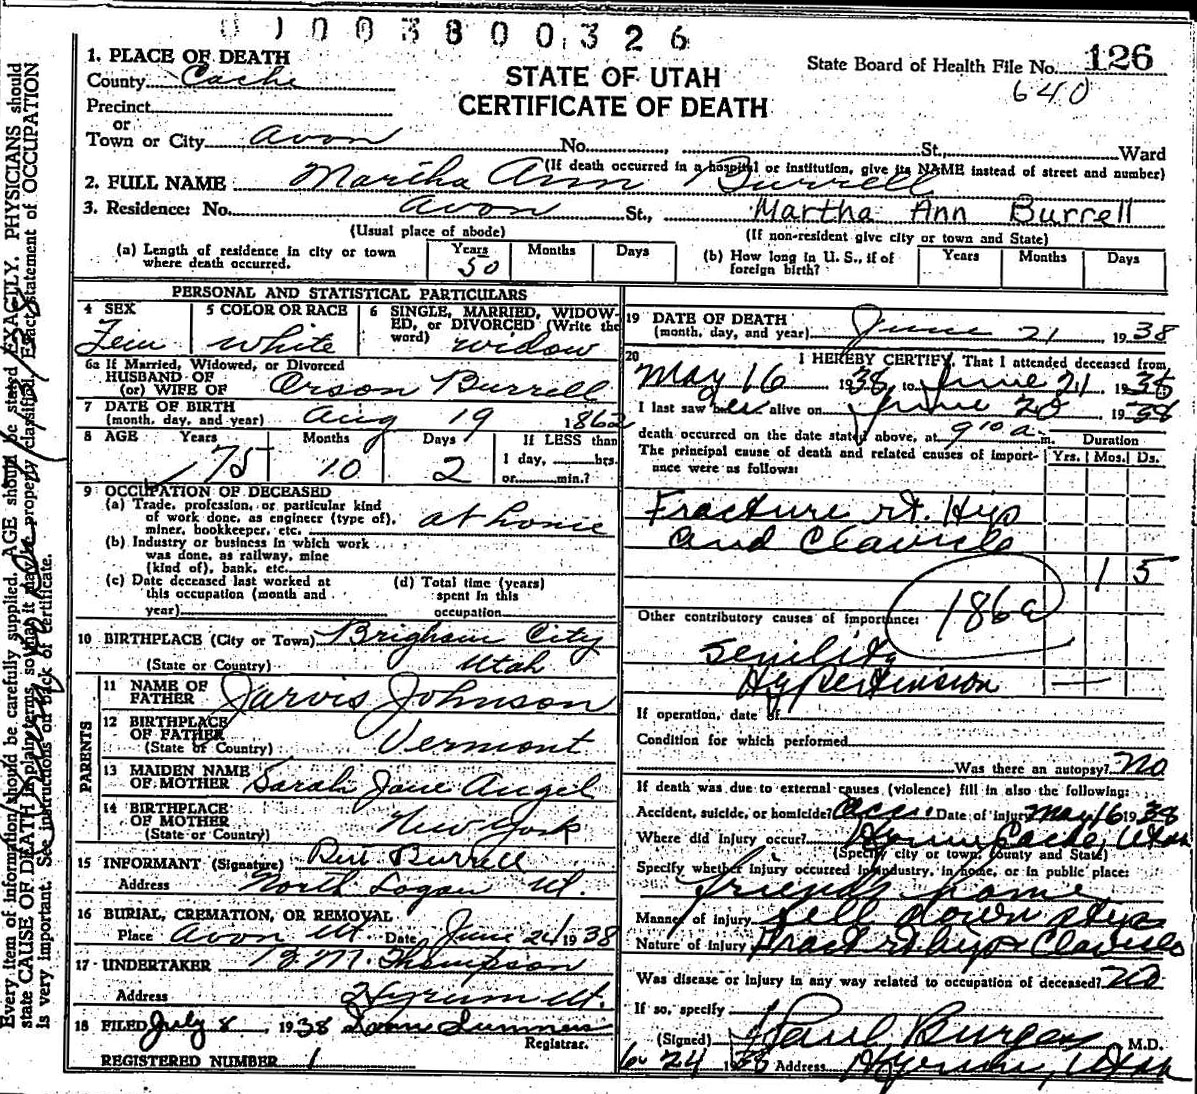 0 1 0 0 3 8 0 0 3 2 6
1. PLACE OF DEATH
County Cache
Precinct
or
Town or City Avon No. St. Ward
STATE OF UTAH
CERTIFICATE OF DEATH
State Board of Health File No. 126
640
(If death occurred in a hospital or institution, give its NAME instead of street and number)
2. FULL NAME Martha Ann Burrell
3. Residence: No. Avon St., Martha Ann Burrell
(Usual place of abode) (If non-resident give city or town and State)
(a) Length of residence in city or town where death occurred. Years 50 Months Days
(b) How long in U. S., if of foreign birth? Years Months Days
PERSONAL AND STATISTICAL PARTICULARS
4 SEX Fem
5 COLOR OR RACE white
6 SINGLE, MARRIED, WIDOWED, or DIVORCED (Write the word) widow
6a If Married, Widowed, or Divorced
HUSBAND OF
(or) WIFE OF Orson Burrell
7 DATE OF BIRTH
(month, day, and year) Aug 19 1862
8 AGE Years 75 Months 10 Days 2 If LESS than 1 day, hrs. or min.?
9 OCCUPATION OF DECEASED
(a) Trade, profession, or particular kind
of work done, as engineer (type of),
miner, bookkeeper, etc. at home
(b) Industry or business in which work
was done, as railway, mine
(kind of), bank, etc.
(c) Date deceased last worked at
this occupation (month and
year)
(d) Total time (years)
spent in this
occupation
10 BIRTHPLACE (City or Town) Brigham City
(State or Country) Utah
PARENTS
11 NAME OF
FATHER Jarvis Johnson
12 BIRTHPLACE
OF FATHER
(State or Country) Vermont
13 MAIDEN NAME
OF MOTHER Sarah Jane Angel
14 BIRTHPLACE
OF MOTHER
(State or Country) New York
15 INFORMANT (Signature) Burrell
Address North Logan Ut.
16 BURIAL, CREMATION, OR REMOVAL
Place Avon Ut Date June 24 1938
17 UNDERTAKER M. Thompson
Address Hyrum Ut.
18 FILED July 8, 1938 Summers
Registrar.
REGISTERED NUMBER 1
19 DATE OF DEATH
(month, day, and year) June 21 1938
20 I HEREBY CERTIFY, That I attended deceased from
May 16 1938, to June 21 1938
I last saw her alive on June 20 1938
death occurred on the date stated above, at 9 10 a m.
Duration
The principal cause of death and related causes of importance were as follows: Yrs. Mos. Ds.
Fracture rt. Hip
and Clavicle
1 5
186a
Other contributory causes of importance:
Senility
Hypertension
If operation, date of
Condition for which performed
Was there an autopsy? no
If death was due to external causes (violence) fill in also the following:
Accident, suicide, or homicide? Acc. Date of injury May 16 1938
Where did injury occur? Hyrum Cache, Utah
(Specify city or town, county and State)
Specify whether injury occurred in industry, in home, or in public place:
friends home
Manner of injury fell down steps
Nature of injury Fract rt hip & Clavicle
Was disease or injury in any way related to occupation of deceased? no
If so, specify
(Signed) Paul Burgess M.D.
6-24 1938 Address Hyrum, Utah
Every item of information should be carefully supplied. AGE should be stated EXACTLY. PHYSICIANS should
state CAUSE OF DEATH in plain terms, so that it may be properly classified. Exact statement of OCCUPATION
is very important. See instructions on back of certificate.